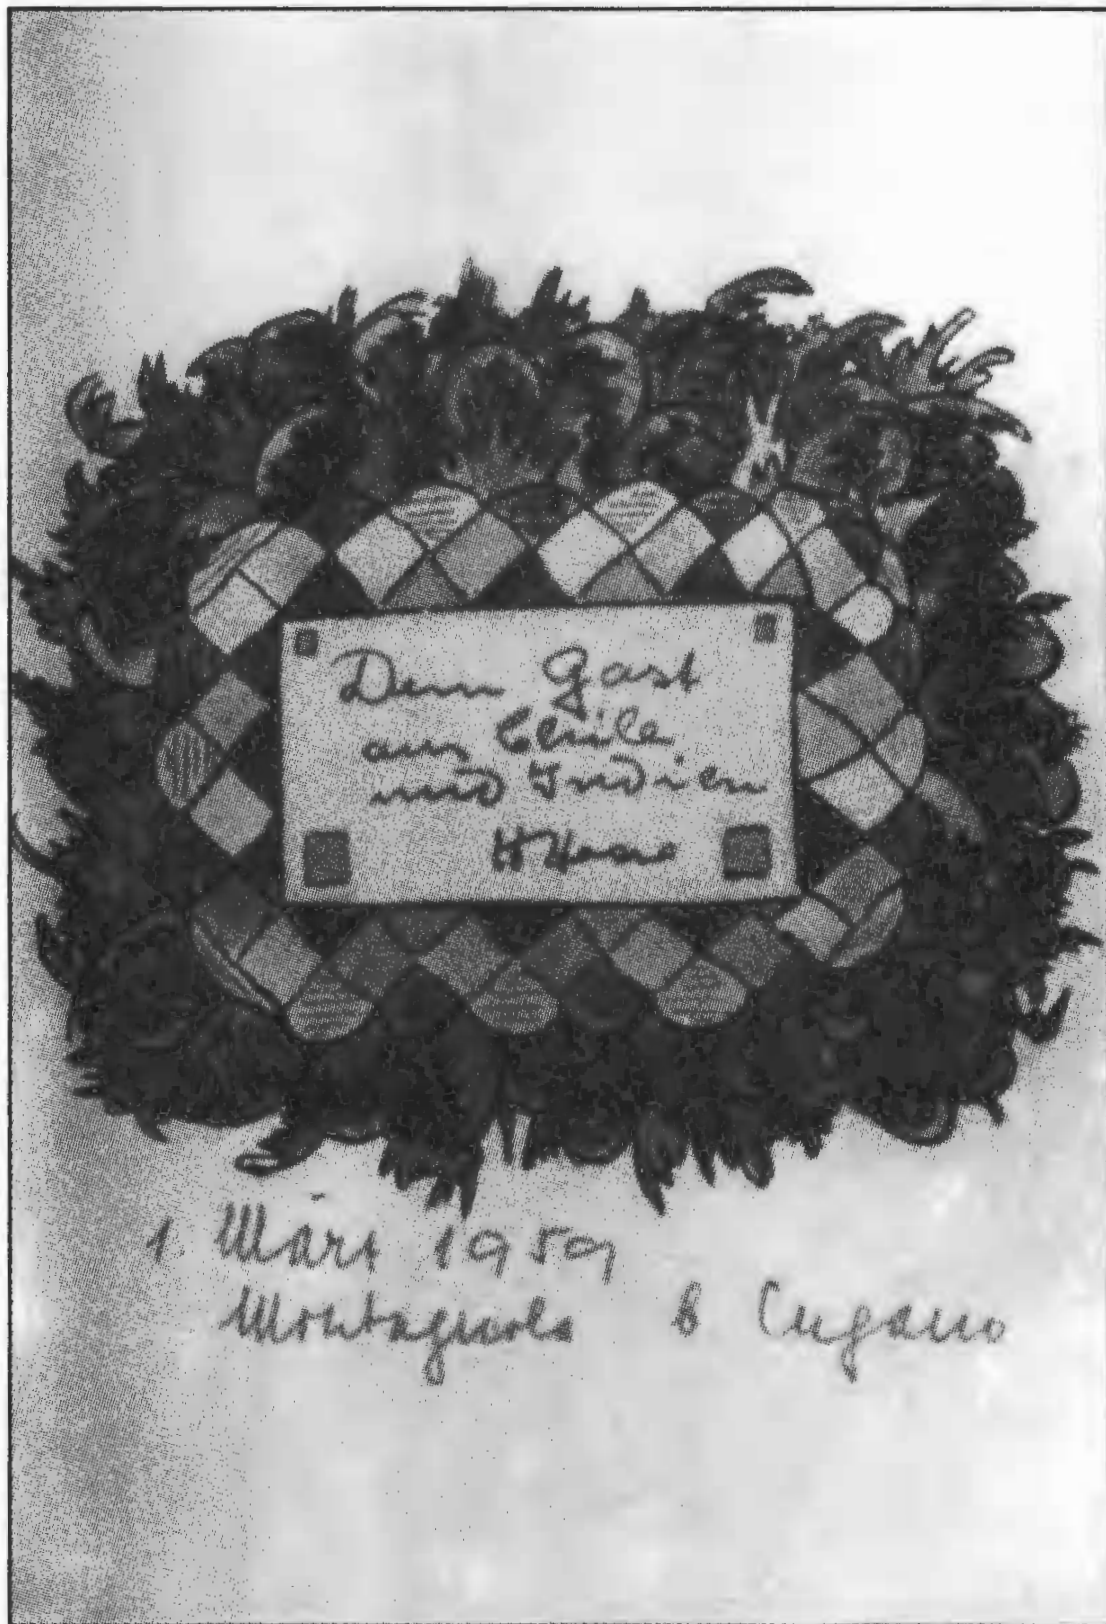 Dem Gast
aus Chile
und Indien
HHesse
1 März 1959
Montagnola b Lugano